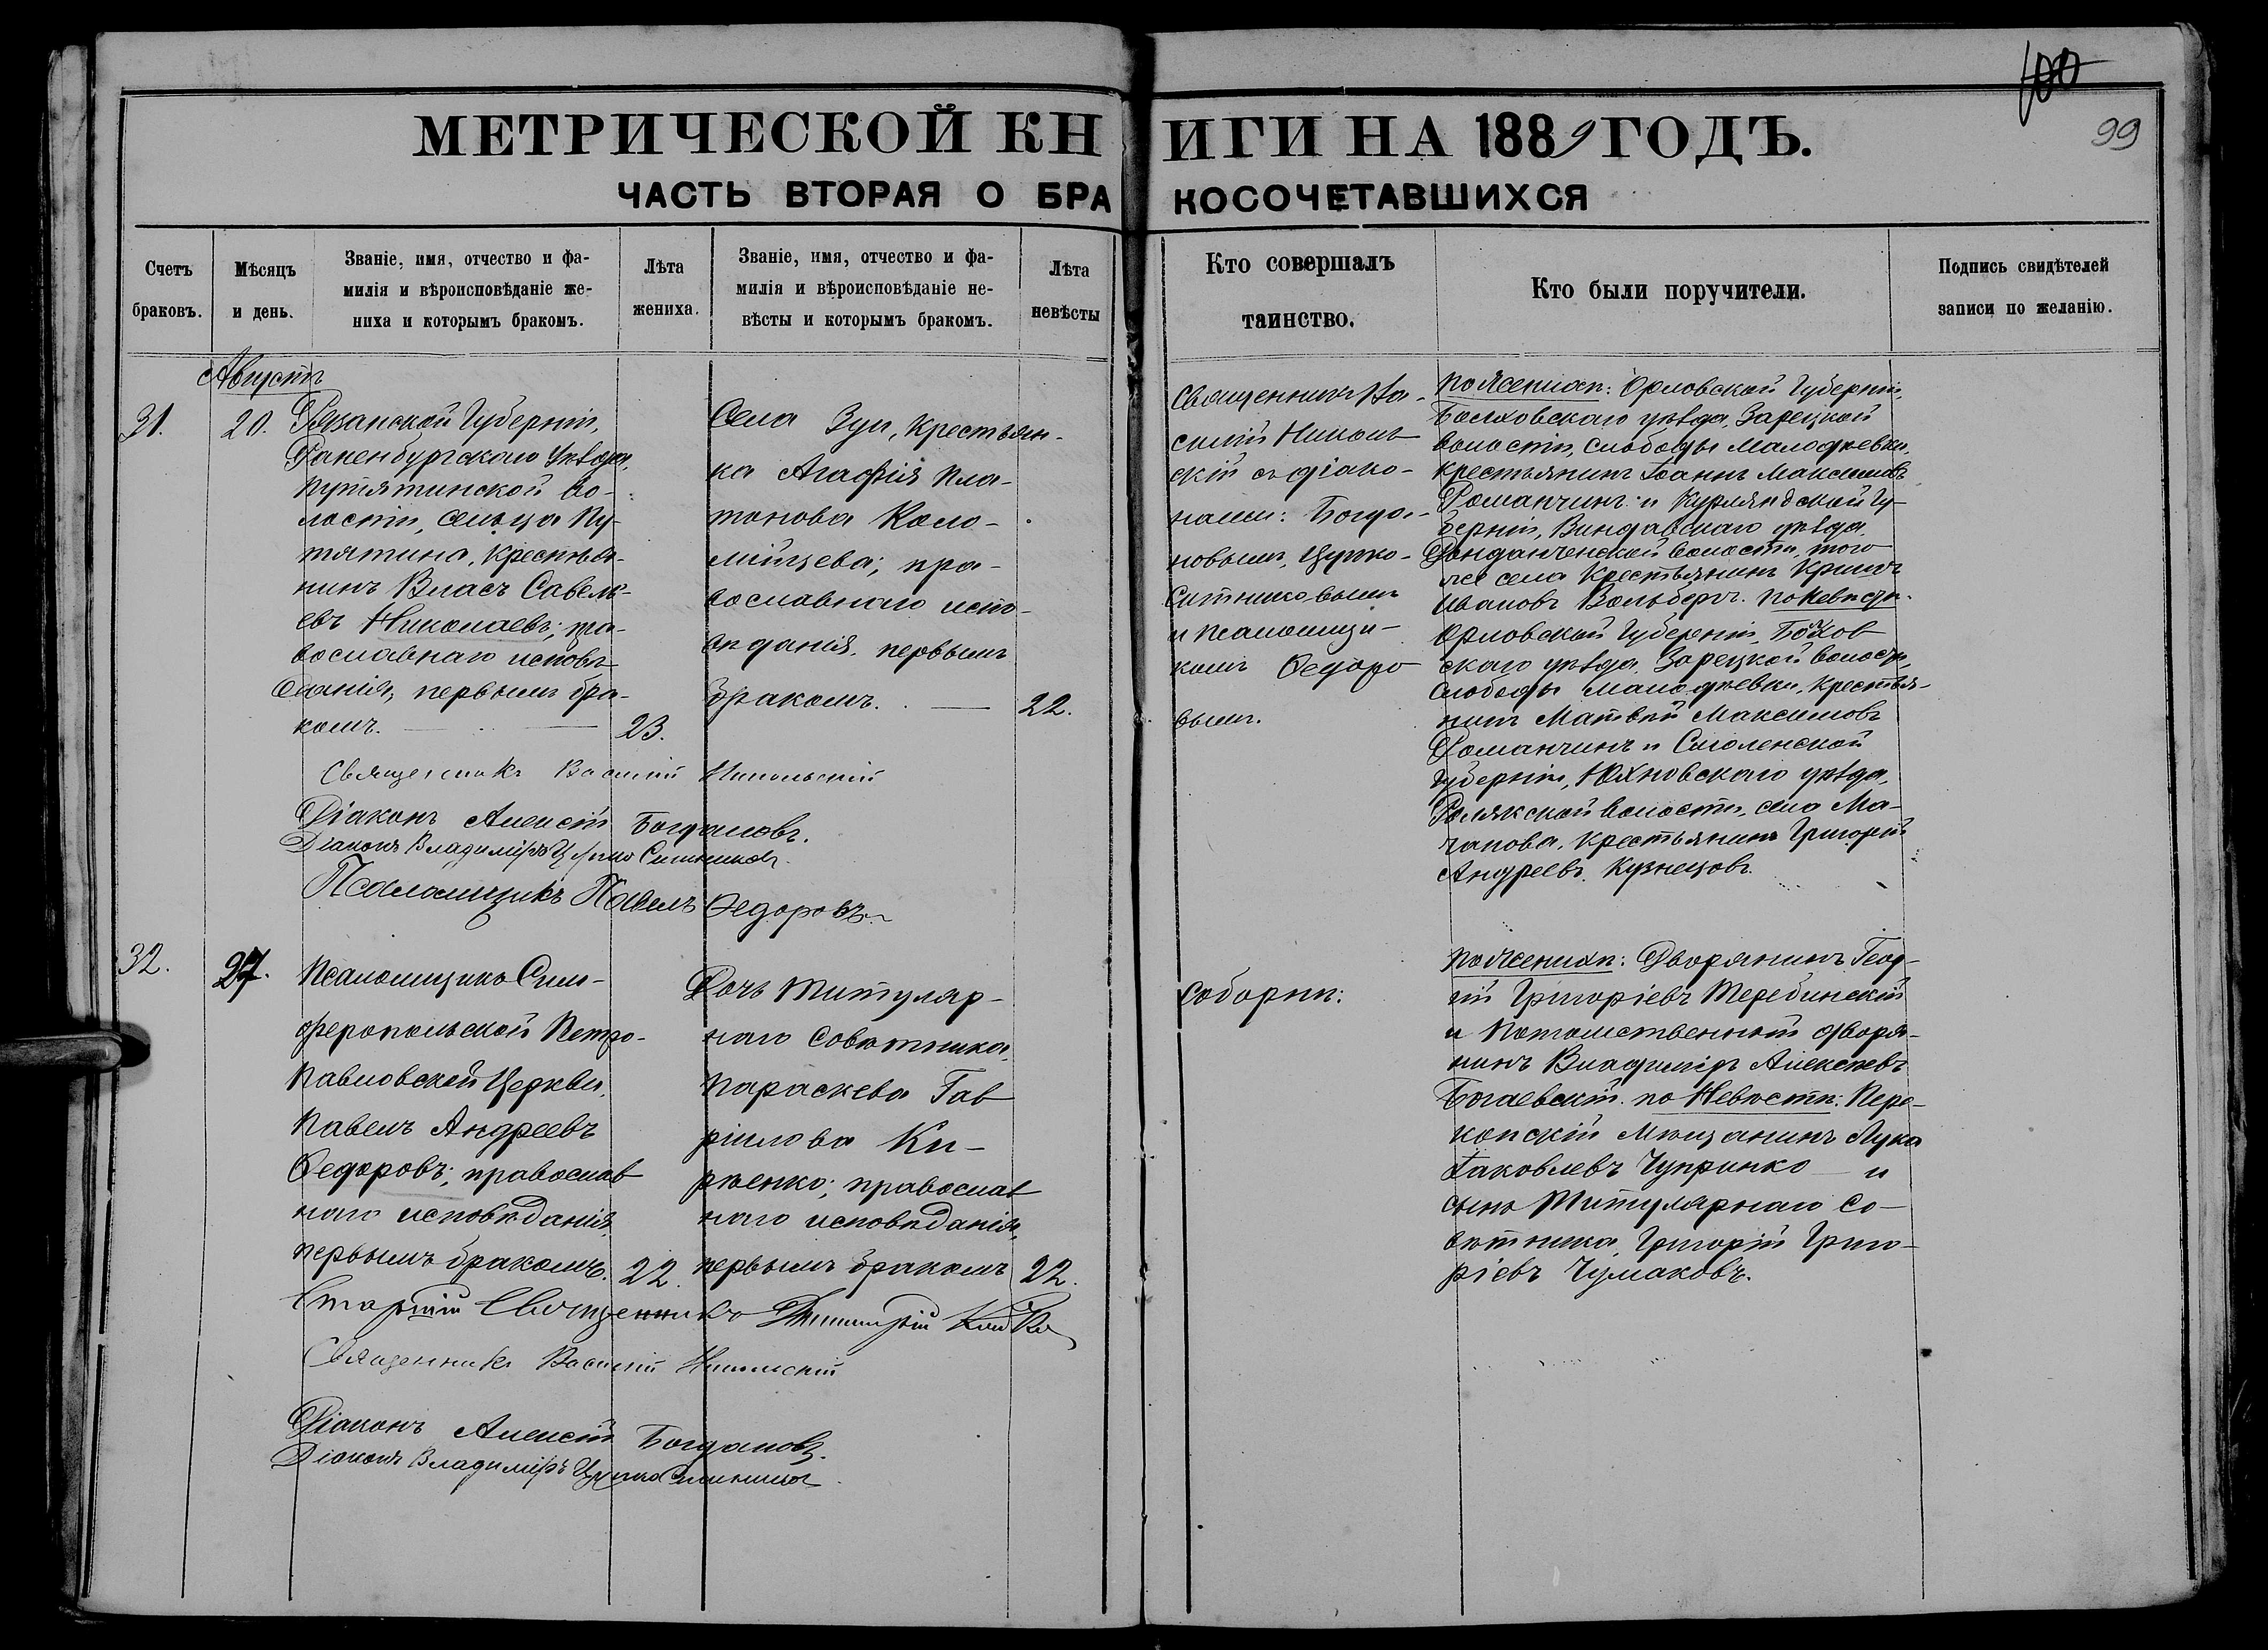 100
99
МЕТРИЧЕСКОЙ КНИГИ НА 1889 ГОДЪ.
ЧАСТЬ ВТОРАЯ О БРАКОСОЧЕТАВШИХСЯ
Счетъ
браковъ.
Мѣсяцъ
и день.
Званіе, имя, отчество и фа-
милія и вѣроисповѣданіе же-
ниха и которымъ бракомъ.
Лѣта
жениха.
Званіе, имя, отчество и фа-
милія и вѣроисповѣданіе не-
вѣсты и которымъ бракомъ.
Лѣта
невѣсты
Кто совершалъ
таинство.
Кто были поручители.
Подпись свидѣтелей
записи по желанію.
Августъ
31.
20.
Рязанской Губерніи,
Раненбургскаго Уѣзда,
Путятинской во-
лости, сельца Пу-
тятина, Крестья-
нинъ Власъ Савель-
евъ Николаевъ; пра-
вославнаго исповѣ-
данія, первымъ бра-
комъ.
23.
Села Зуи, Крестьян-
ка Агафія Пла-
тонова Коло-
мійцева; пра-
вославнаго испо-
вѣданія, первымъ
бракомъ.
22.
Священникъ Ва-
силій Николь-
скій съ діако-
нами: Богда-
новымъ, Цупко-
Ситниковымъ
и псаломщи-
комъ Федоро
вымъ.
по Женихѣ: Орловской Губерніи,
Болховскаго уѣзда, Зарецкой
волости, слободы
Крестьянинъ Іоаннъ Максимовъ
Романчинъ и Курляндской Гу-
берніи, Виндавскаго уѣзда,
волости, того
же села Крестьянинъ
Ивановъ Вольбергъ. по Невѣстѣ:
Орловской Губерніи, Болхов
скаго уѣзда, Зарецкой волости,
слободы Крестья-
нинъ Матвѣй Максимовъ
Романчинъ и Смоленской
Губерніи, Юхновскаго уѣзда,
волости, села
Крестьянинъ Григорій
Андреевъ Кузнецовъ.
Священникъ Василій Никольскій
Діаконъ Алексій Богдановъ.
Діаконъ Владиміръ Цупко Ситниковъ.
Псаломщикъ Павелъ Федоровъ.
32.
27.
Псаломщикъ Сим-
феропольской Петро-
Павловской Церкви,
Павелъ Андреевъ
Федоровъ; православ
наго исповѣданія,
первымъ бракомъ.
22.
Дочь Титуляр-
наго Совѣтника,
Параскева Гав
ріилова Ки-
ріенко; православ
наго исповѣданія,
первымъ бракомъ
22.
Соборнѣ:
по Женихѣ: Дворянинъ Геор-
гій Григоріевъ Теребинскій
и Потомственный дворя-
нинъ Владиміръ Алексѣевъ
Богаевскій. по Невѣстѣ: Пере-
копскій Мѣщанинъ Лука
Іаковлевъ Чупринко и
сынъ Титулярнаго Со-
вѣтника, Григорій Григо-
ріевъ Чумаковъ.
Старшій Священникъ Димитрій Койко
Священникъ Василій Никольскій
Діаконъ Алексій Богдановъ.
Діаконъ Владиміръ Цупко Ситниковъ.